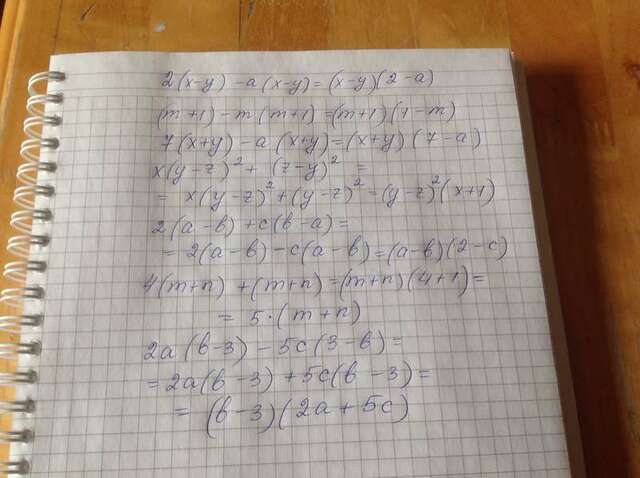 2(x-y) - a(x-y) = (x-y)(2-a)
(m+1) - m(m+1) = (m+1)(1-m)
7(x+y) - a(x+y) = (x+y)(7-a)
x(y-z)² + (z-y)² =
= x(y-z)² + (y-z)² = (y-z)²(x+1)
2(a-b) + c(b-a) =
= 2(a-b) - c(a-b) = (a-b)(2-c)
4(m+n) + (m+n) = (m+n)(4+1) =
= 5·(m+n)
2a(b-3) - 5c(3-b) =
= 2a(b-3) + 5c(b-3) =
= (b-3)(2a+5c)